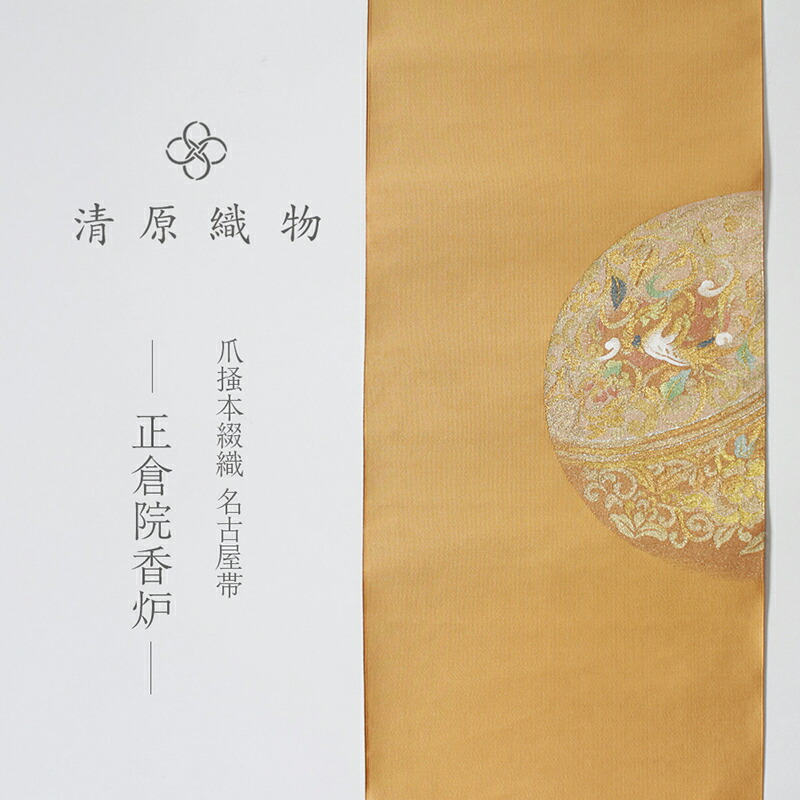 清原織物
爪掻本綴織 名古屋帯
―正倉院香炉―